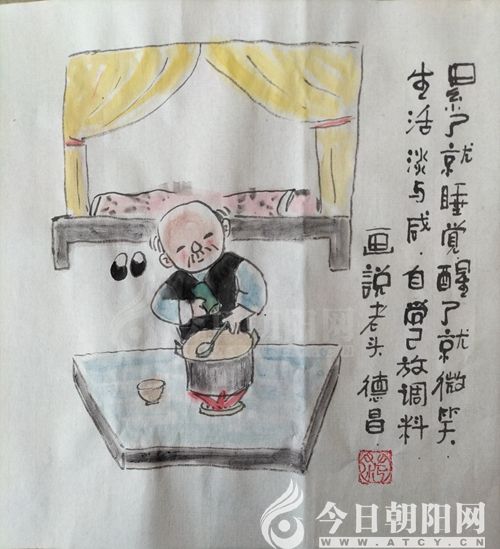 累了就睡觉.醒了就微笑.
生活淡与咸.自己放调料
画说老头 德昌
今日朝阳网
WWW.ATCY.CN